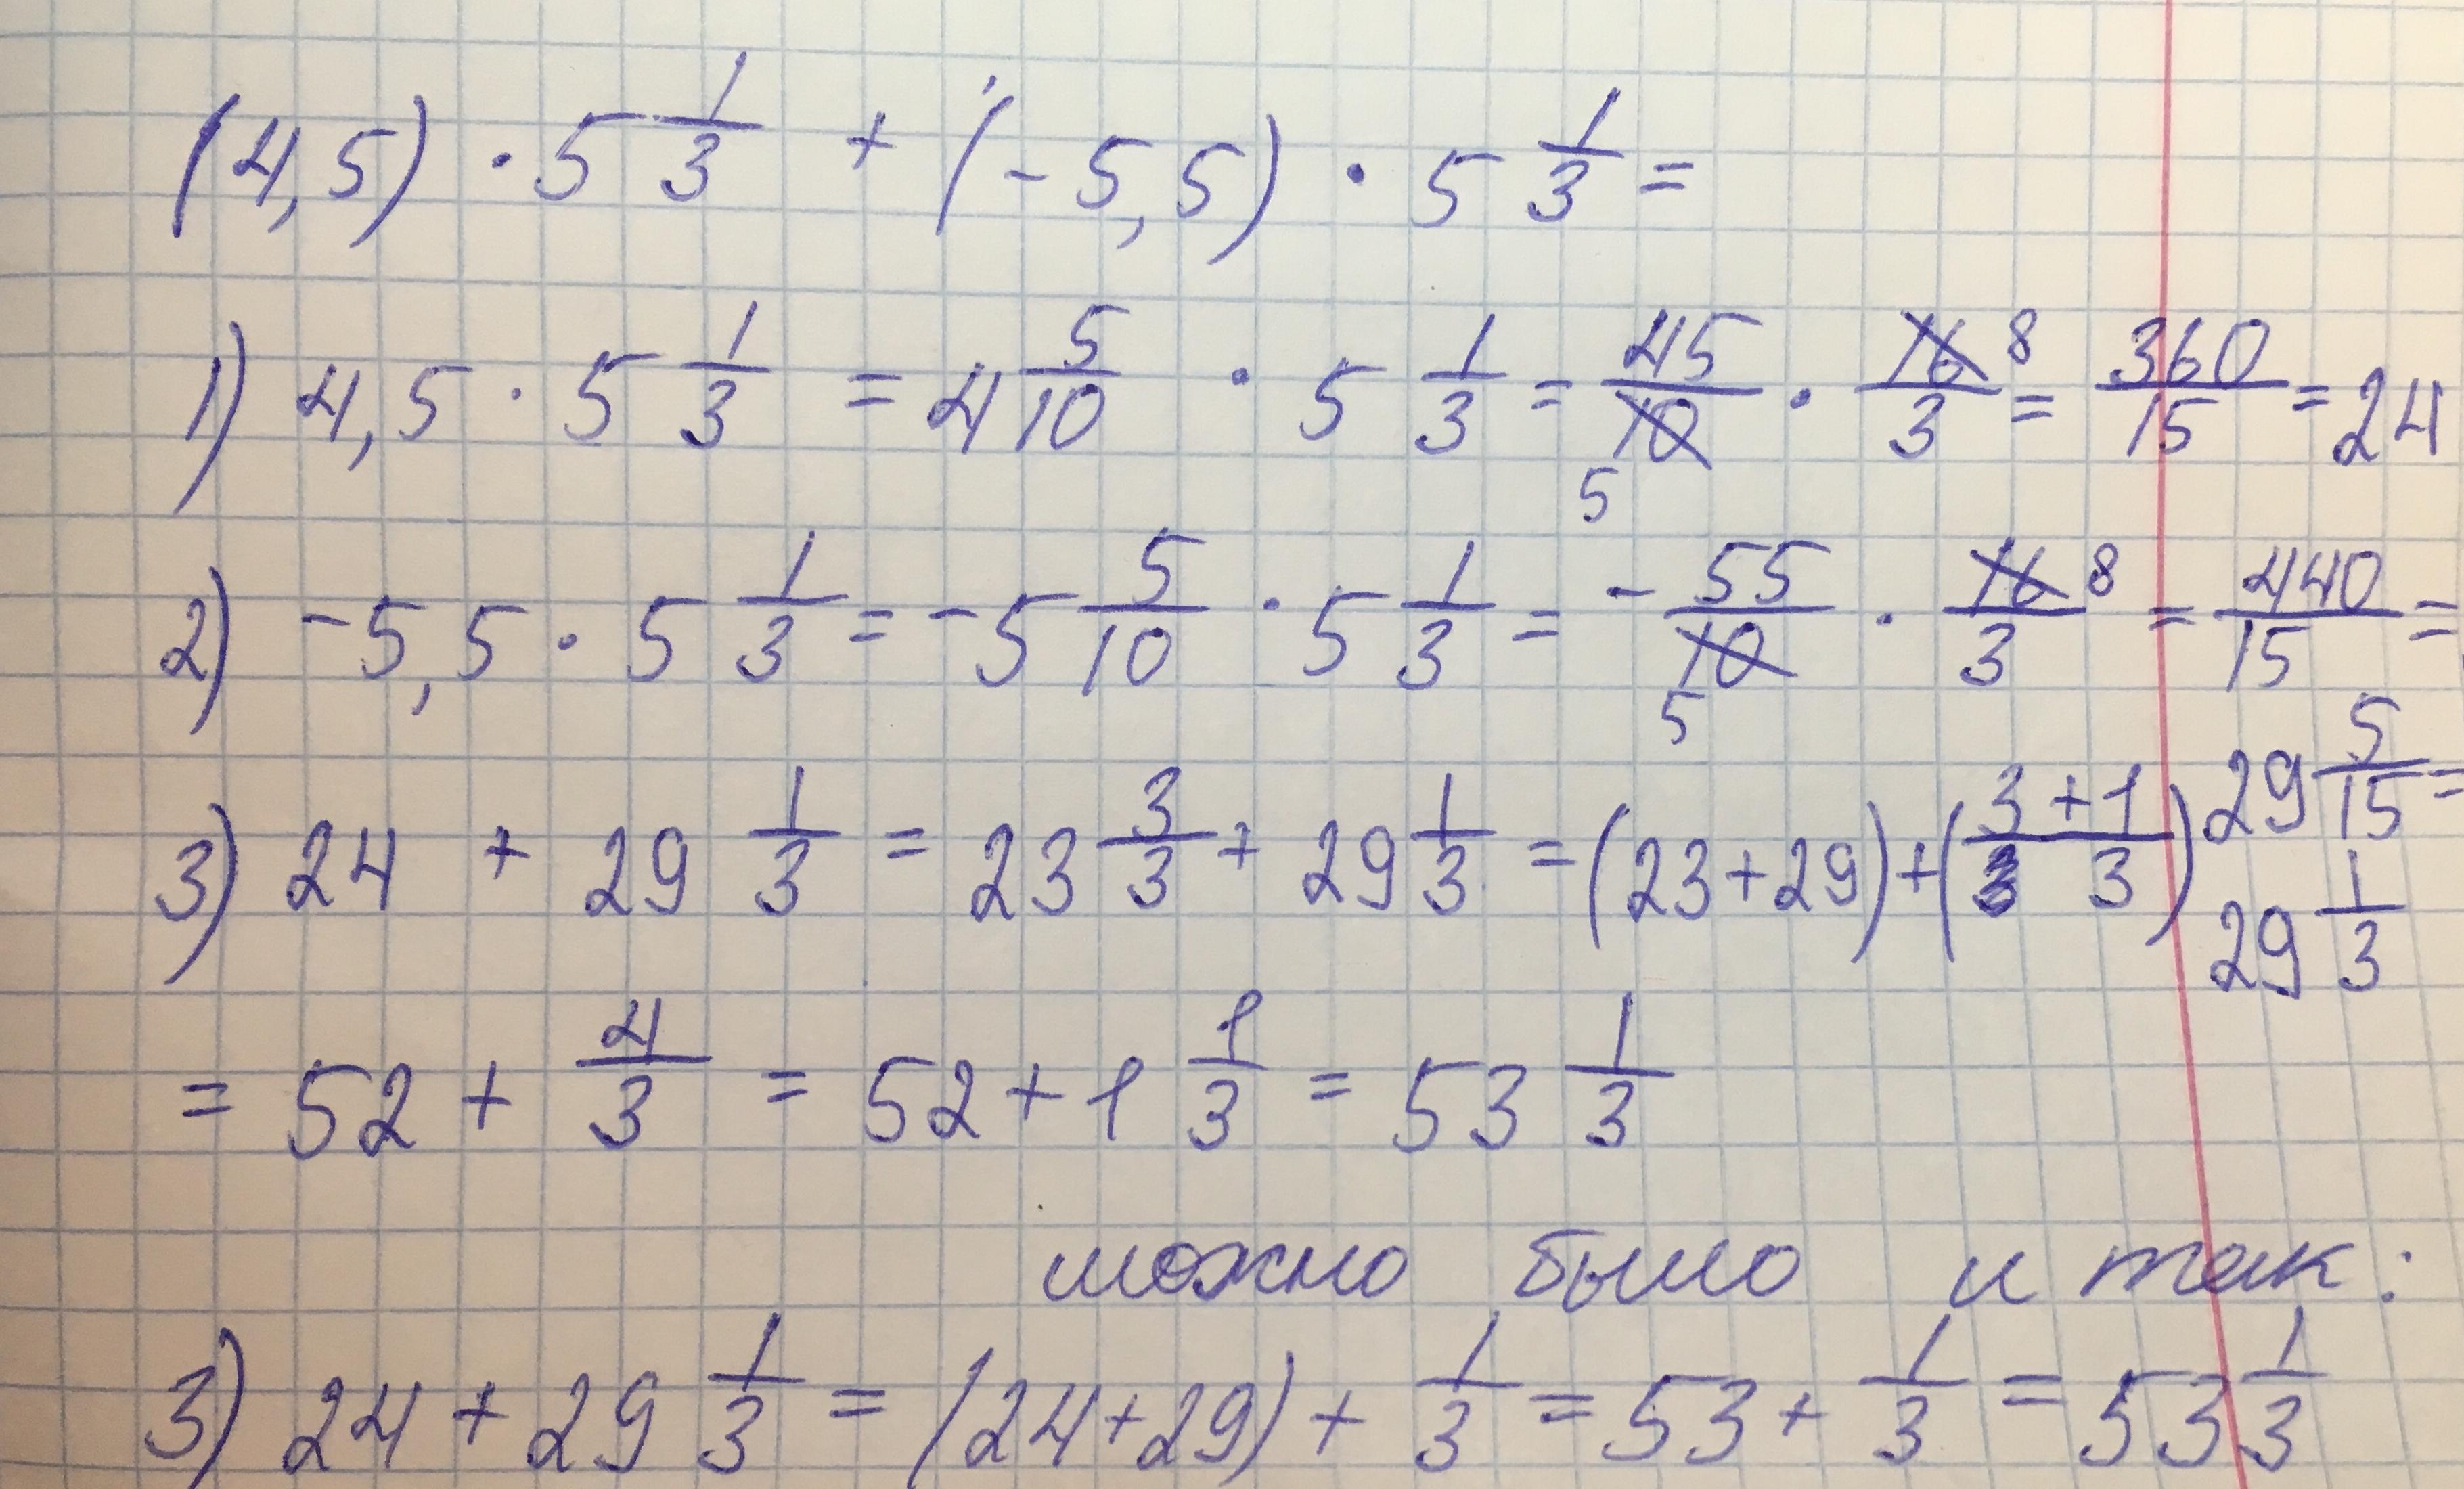 (4,5) · 5 1/3 + (-5,5) · 5 1/3 =
1) 4,5 · 5 1/3 = 4 5/10 · 5 1/3 = 45/10 5 · 16/3 8 = 360/15 = 24
2) -5,5 · 5 1/3 = -5 5/10 · 5 1/3 = - 55/10 5 · 16/3 8 = 440/15 =
29 5/15 =
29 1/3
3) 24 + 29 1/3 = 23 3/3 + 29 1/3 = (23+29) + (3+1/3)
= 52 + 4/3 = 52 + 1 1/3 = 53 1/3
можно было и так:
3) 24 + 29 1/3 = (24+29) + 1/3 = 53 + 1/3 = 53 1/3